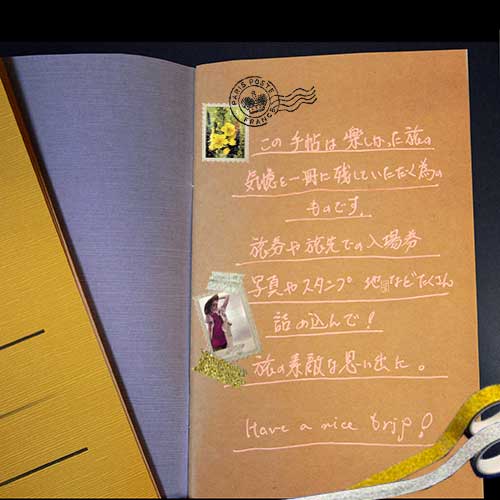 PARIS POSTE
FRANCE
この手帖は楽しかった旅の
気憶を一冊に残していただく為の
ものです。
旅券や旅先での入場券
写真やスタンプ 地図などたくさん
詰め込んで！
旅の素敵な思い出に。
Have a nice trip!